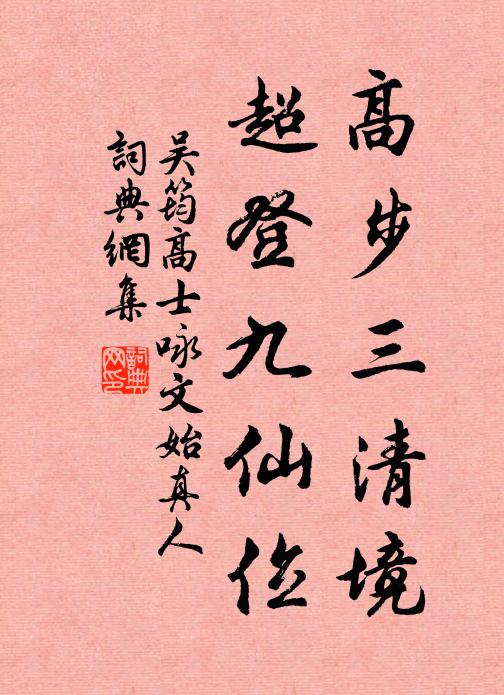 高步三清境
超登九仙位
吴筠高士咏文始真人
詞典網集
詞典网印